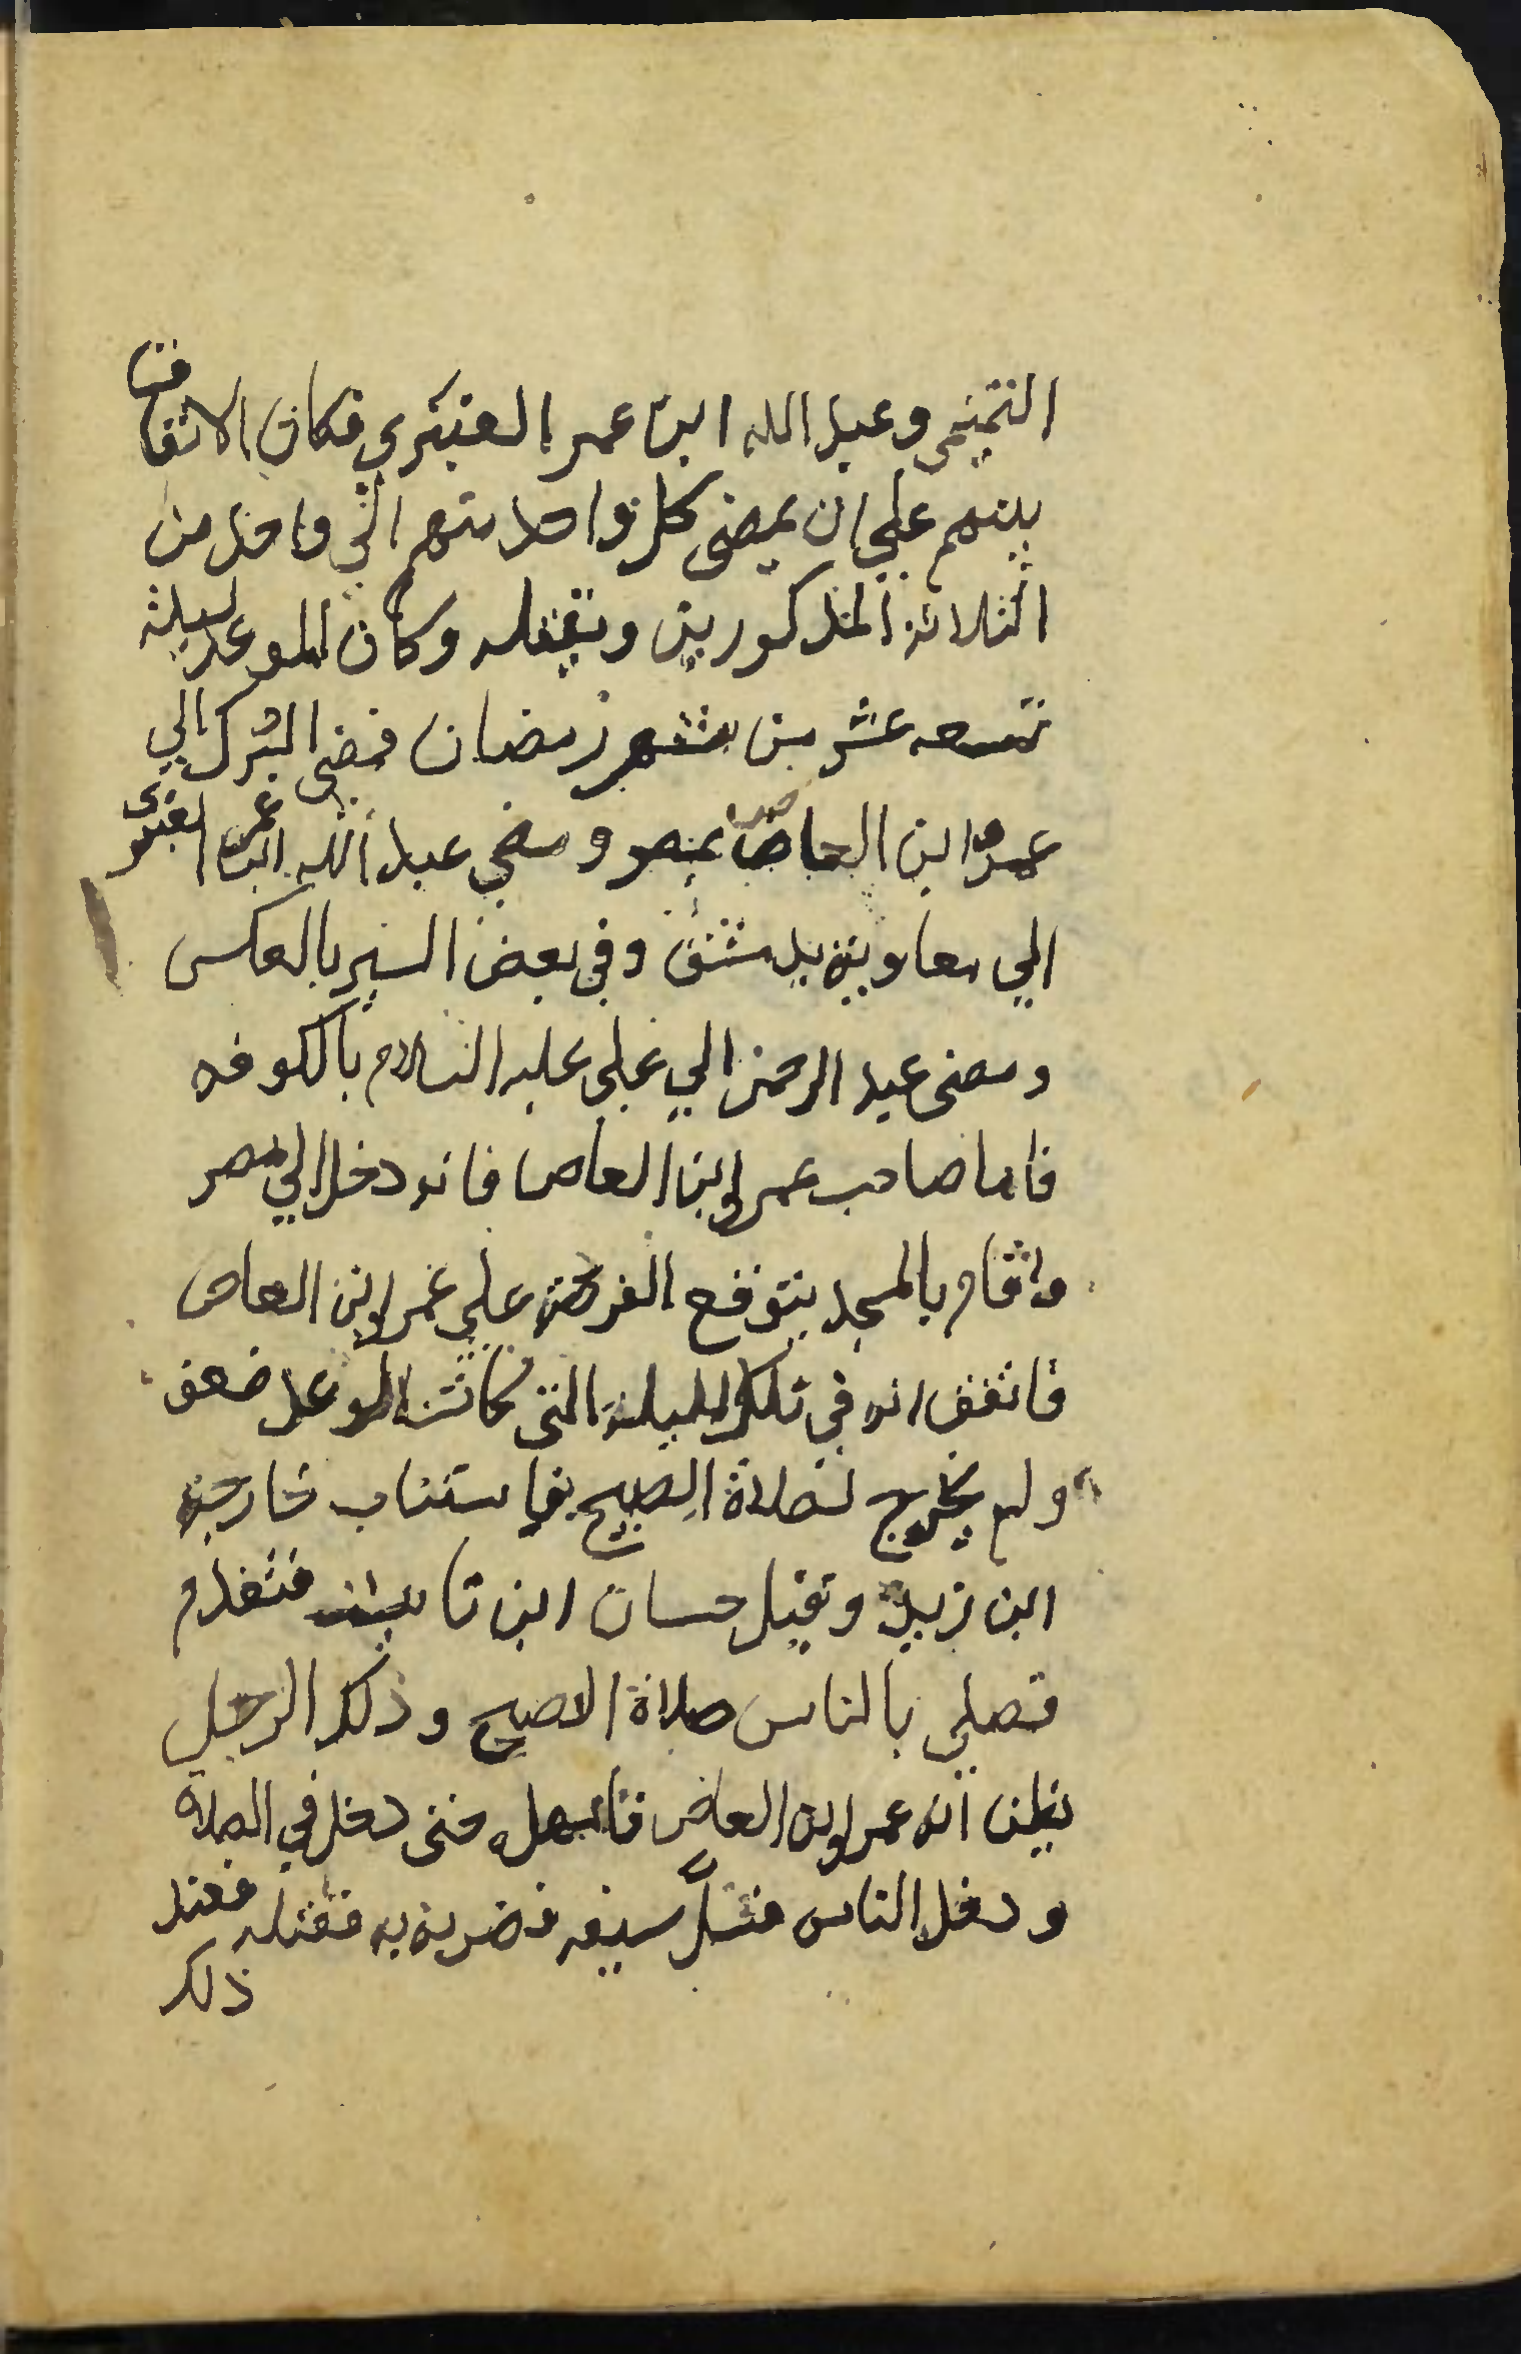 التميمي وعبد الله ابن عمر العنبري فكان الاتفاق
بينهم علي ان يمضى كل واحد منهم الي واحد من
الثلاثة المذكورين ويقتله وكان الموعد ليلة
تسعه عشر من شهر رمضان فمضى البرك الي
عمرو ابن العاص بمصر ومضي عبد الله ابن عمر العنبري
الي معاوية بدمشق وفي بعض السير بالعكس
ومضى عبد الرحمن الي علي عليه السلام بالكوفه
فاما صاحب عمرو ابن العاص فانه دخل الي مصر
واقام بالمسجد يتوقع الفرصة علي عمرو ابن العاص
فاتفق انه في تلك الليلة التى كانت الموعد ضعف
ولم يخرج لصلاة الصبح فاستناب خارجة
ابن زيد وقيل حسان ابن ثابت فتقدم
فصلي بالناس صلاة الاصبح وذلك الرجل
يظن انه عمرو ابن العاص فامهله حتى دخل في الصلاة
ودخل الناس فسلَّ سيفه فضربه به فقتله فعند
ذلك